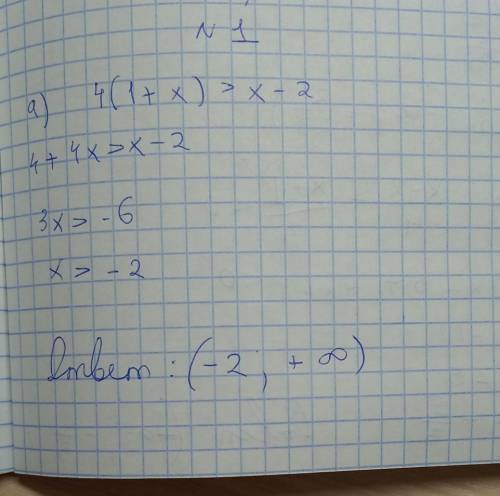 N 1
а) 4(1 + x) > x - 2
4 + 4x > x - 2
3x > -6
x > -2
Ответ: (-2; +∞)